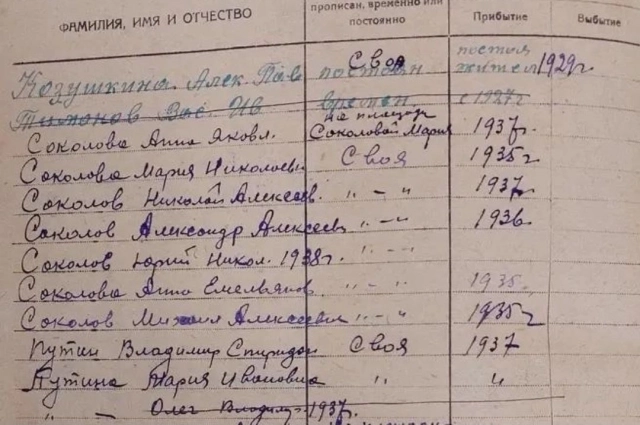 ФАМИЛИЯ, ИМЯ И ОТЧЕСТВО прописан, временно или постоянно Прибытие Выбытие
Козушкина Алек. Пав Своя постоян постоя жител 1929 г.
Тимонов Вас. Ив времен. с 1927 г
Соколова Анна Яковл. на площади Соколовой Мария 1937 г.
Соколова Мария Николаевн Своя 1935 г
Соколов Николай Алексеев. " — " 1937
Соколов Александр Алексеев " — " 1936
Соколов Юрий Никол. 1938 г. " — "
Соколова Анна Емельянов " — " 1935
Соколов Михаил Алексеевич " — " 1935 г
Путин Владимир Спиридон Своя 1937
Путина Мария Ивановна " "
" — Олег Владимир 1937 г.